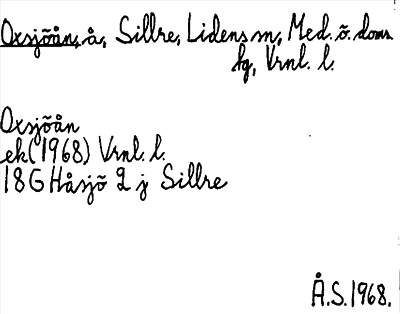 Oxsjöån, å, Sillre, Lidens sn, Med. ö. doms.
fg, Vrnl. l.
Oxsjöån
ek (1968) Vrnl. l.
18 G Håsjö 2 j Sillre
Å.S. 1968.